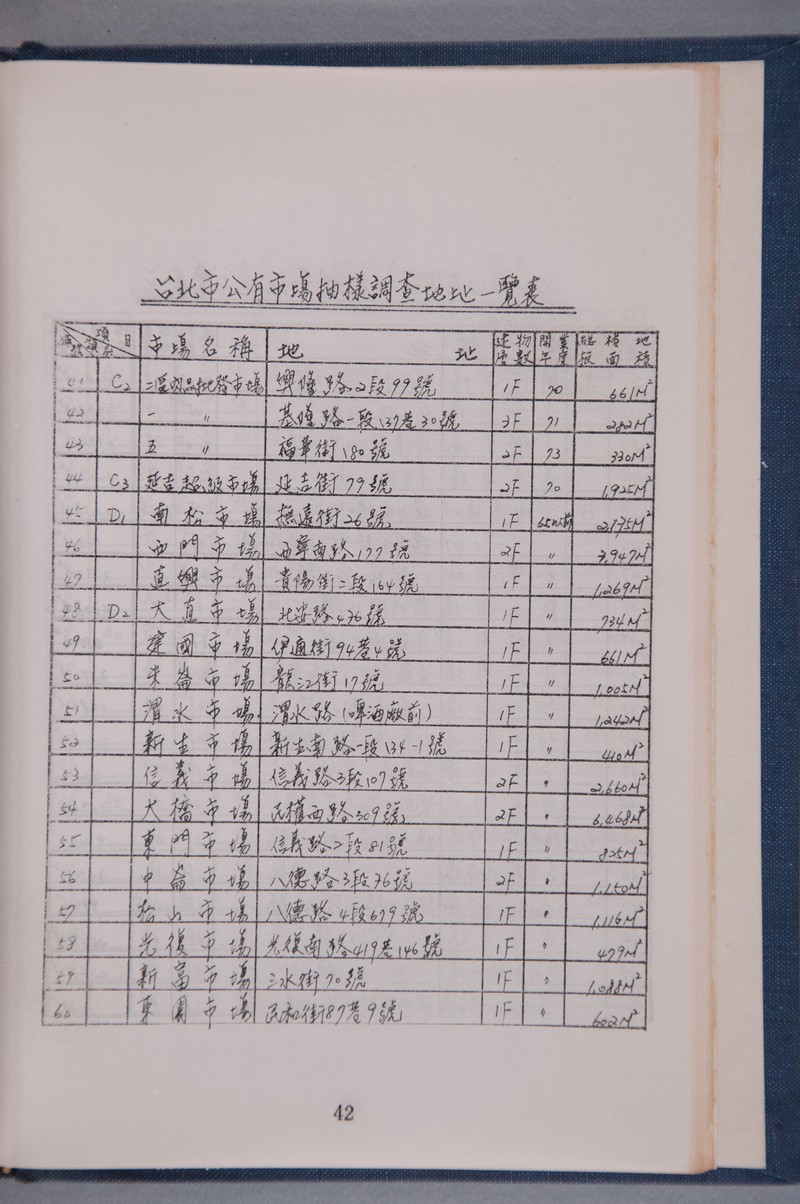 台北市公有市場抽樣調查地址一覽表
項目 類別 市場名稱 地址 建物層數 開業年度 總樓地板面積
41 C2 批發市場 興隆路2段99號 1F 70 661M²
42 一 〃 基隆路一段137巷30號 3F 71 282M²
43 五 〃 福華街180號 2F 73 330M²
44 C3 延吉超級市場 延吉街79號 2F 70 1,925M²
45 D1 南松市場 撫遠街26號 1F 65以前 2,175M²
46 西門市場 西寧南路177號 2F 〃 3,947M²
47 直興市場 貴陽街二段164號 1F 〃 1,269M²
48 D2 大直市場 北安路476號 1F 〃 734M²
49 建國市場 伊通街94巷4號 1F 〃 661M²
50 朱崙市場 龍江街17號 1F 〃 1,005M²
51 渭水市場 渭水路(啤酒廠前) 1F 〃 1,242M²
52 新生市場 新生南路一段134-1號 1F 〃 410M²
53 信義市場 信義路3段107號 2F 〃 2,660M²
54 大橋市場 民權西路309號 2F 〃 6,468M²
55 東門市場 信義路2段81號 1F 〃 825M²
56 中崙市場 八德路3段76號 2F 〃 1,150M²
57 松山市場 八德路4段679號 1F 〃 1,116M²
58 光復市場 光復南路419巷146號 1F 〃 479M²
59 新富市場 三水街70號 1F 〃 1,088M²
60 東園市場 民和街87巷9號 1F 〃 602M²
42